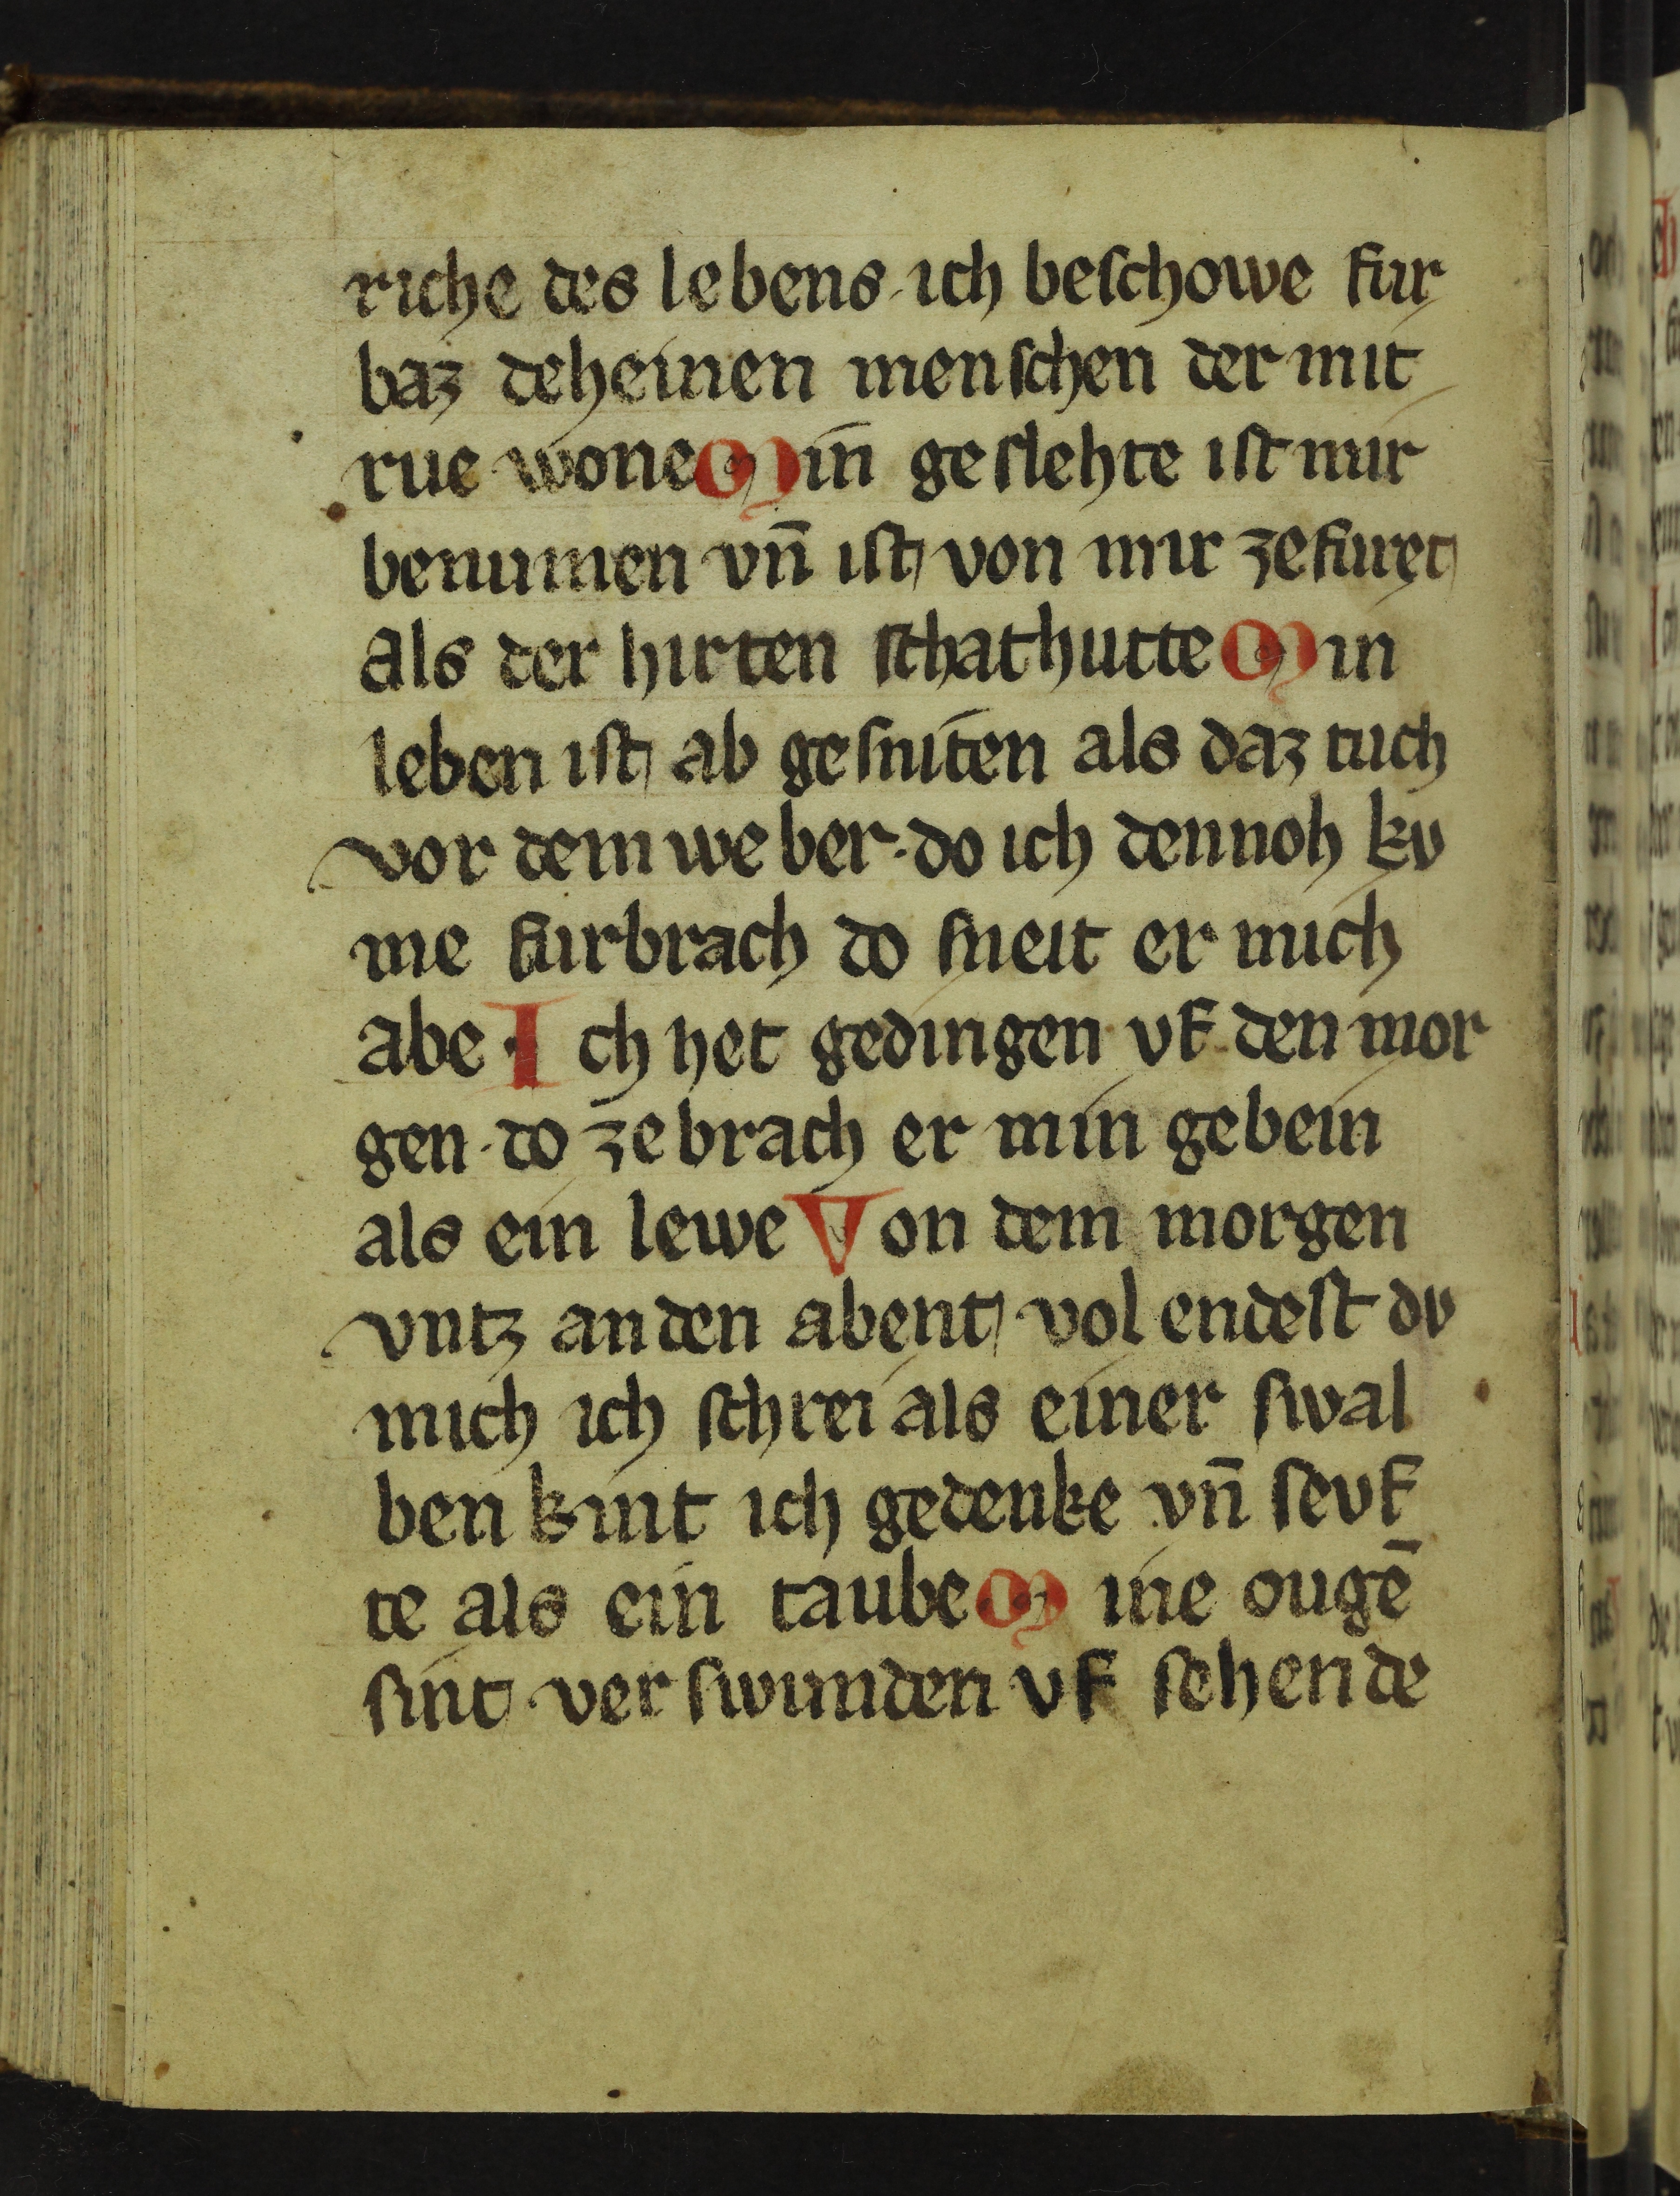 riche des lebens · ich beschowe fur
baz deheinen menschen der mit
rue wone Min geslehte ist mir
benumen vn̄ ist von mir zefuret
als der hirten schathutte Min
leben ist ab gesniten als daz tuch
vor dem weber · do ich dennoh kv
me furbrach do sneit er mich
abe · Ich het gedingen vf den mor
gen · do zebrach er min gebein
als ein lewe Von dem morgen
vntz an den abent vol endest dv
mich ich schrei als einer swal
ben kint ich gedenke vn̄ sevf
te als ein taube Mine ougē
sint verswunden vf sehende